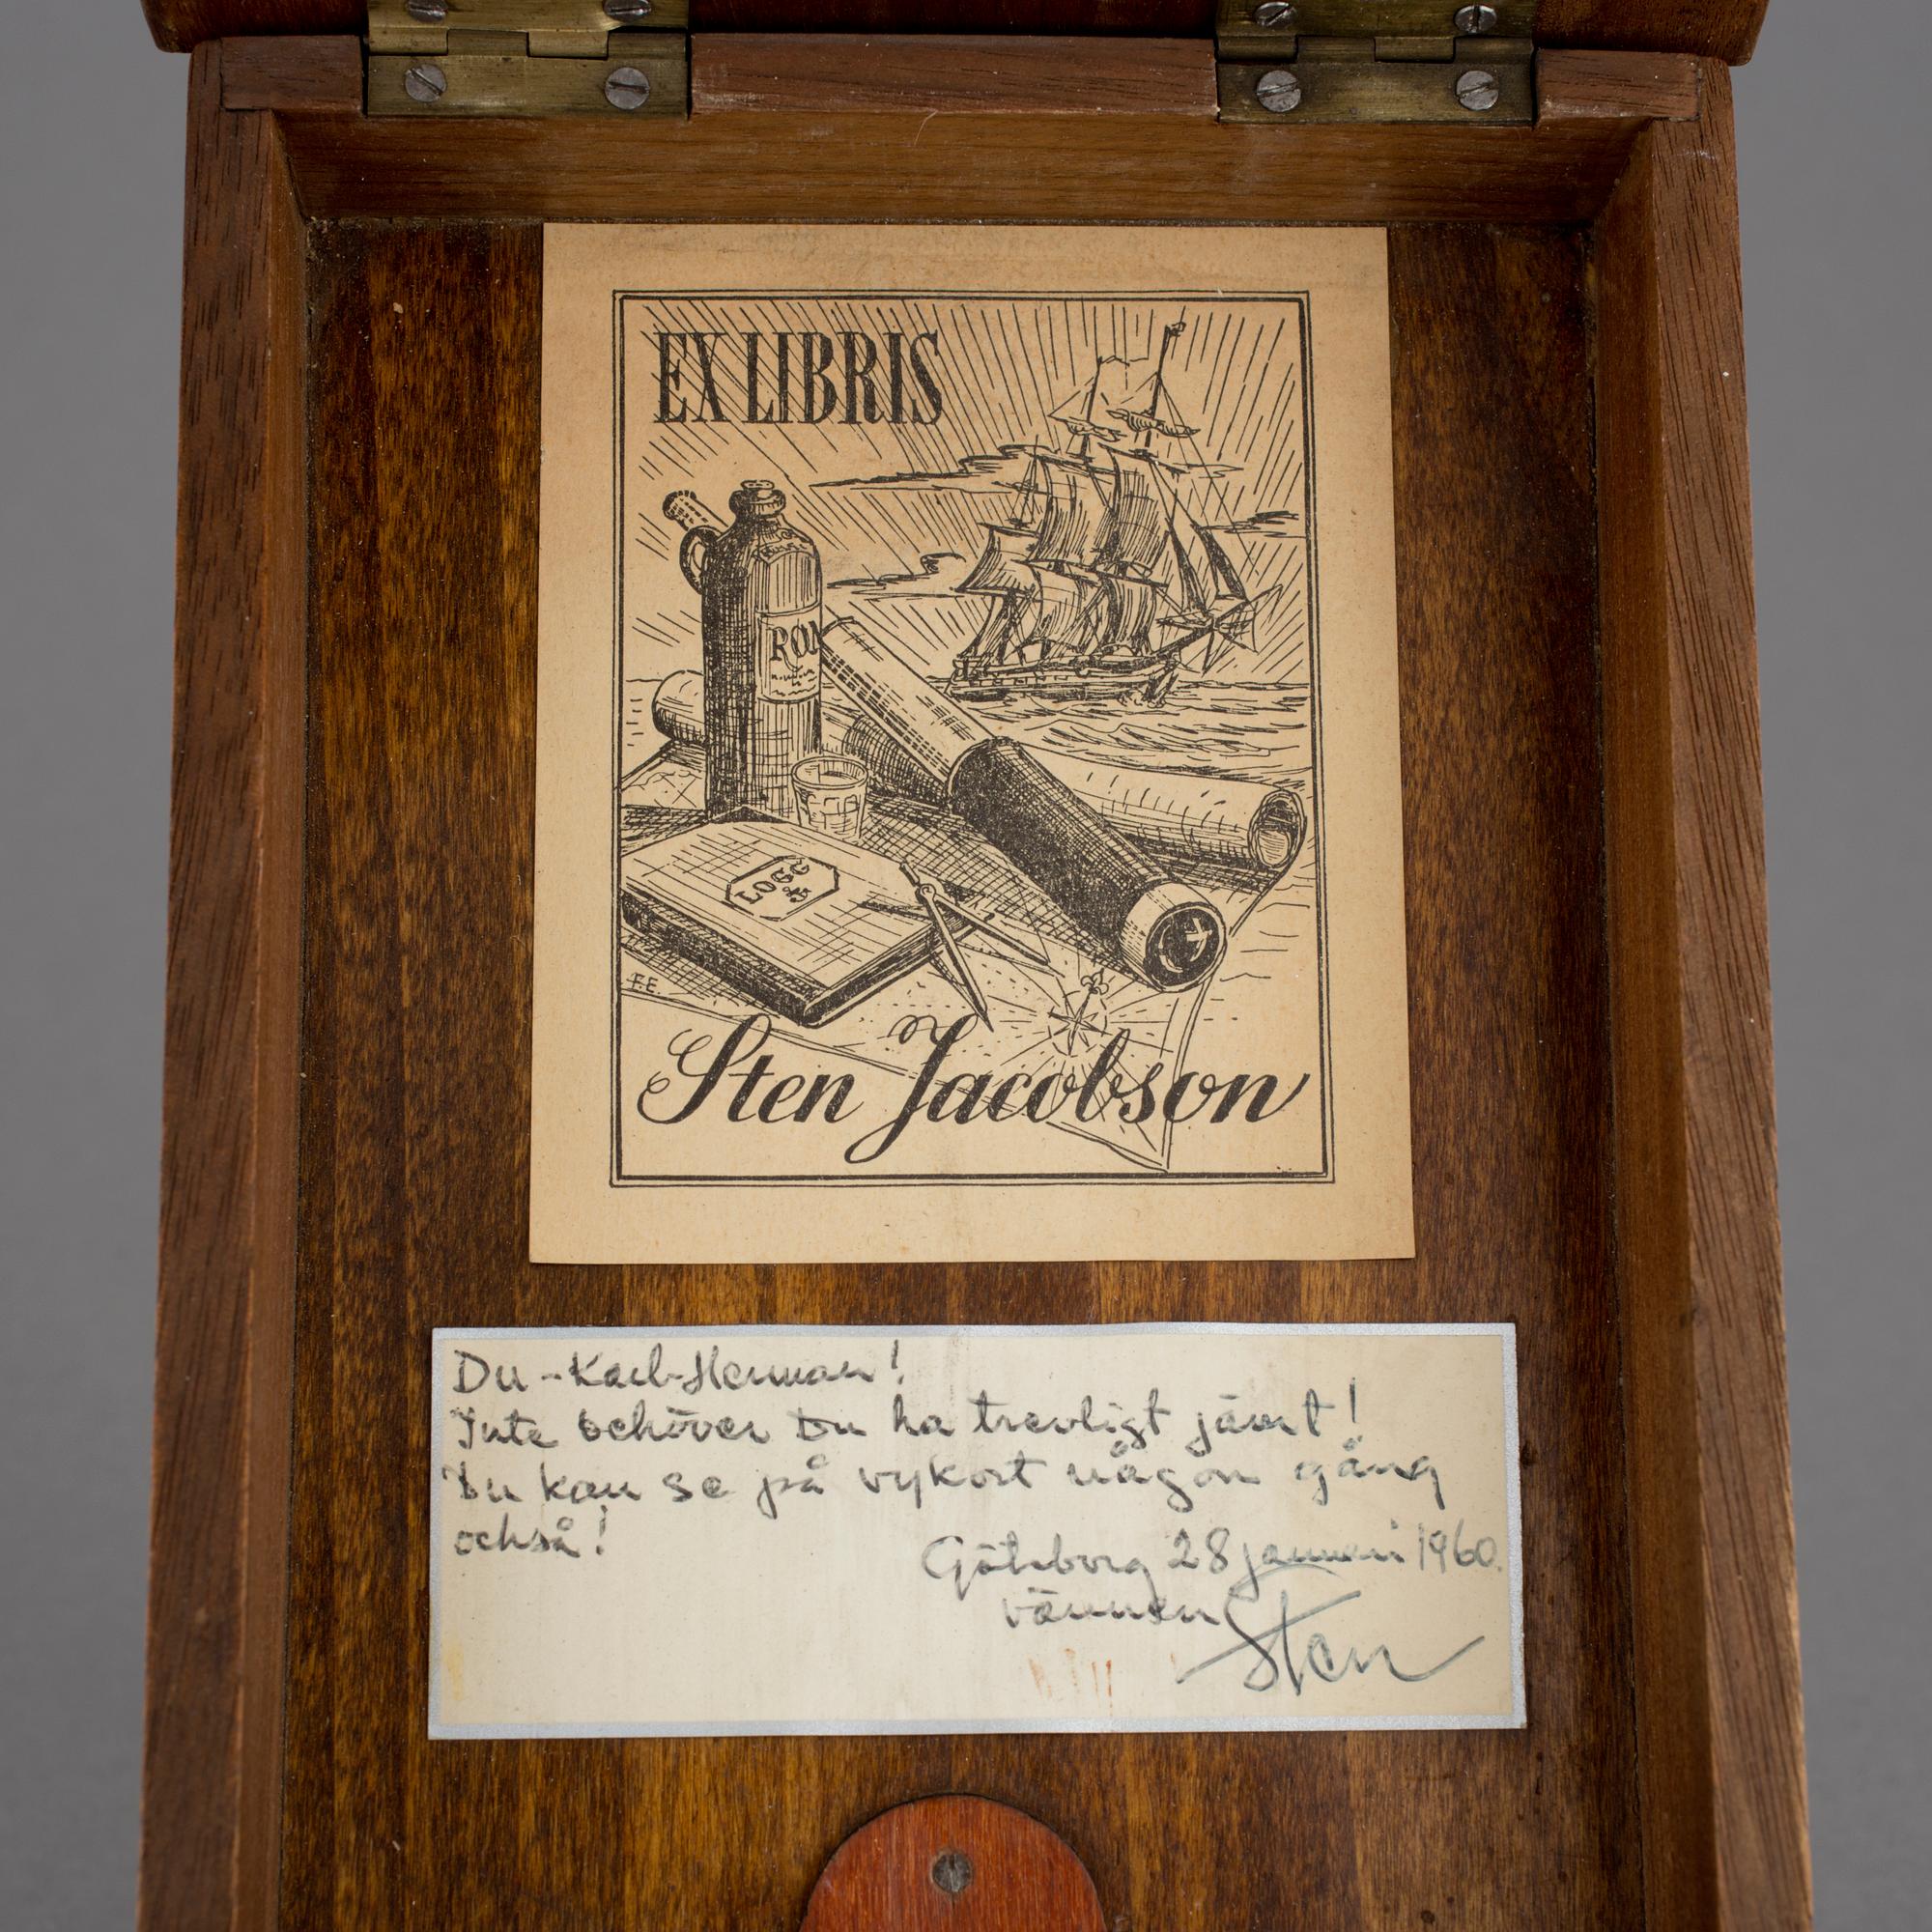 EX LIBRIS
ROM
LOGG
F.E.
Sten Jacobson
Du - Karl-Herman!
Inte behöver Du ha trevligt jämt!
Du kan se på vykort någon gång
också!
Göteborg 28 januari 1960.
vännen
Sten